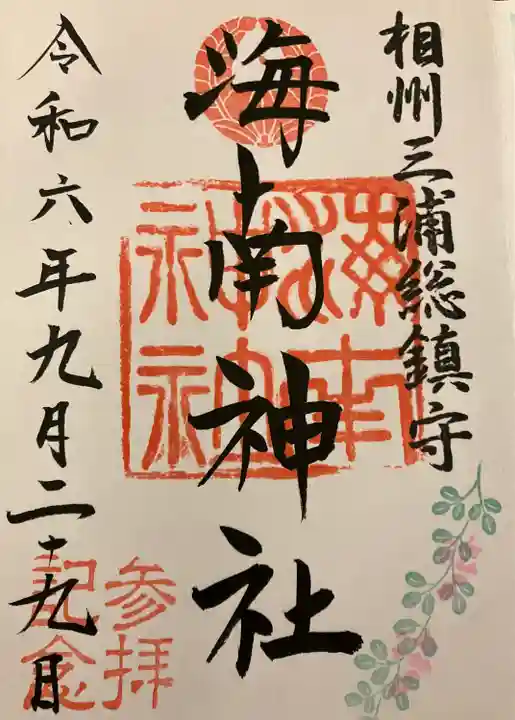 相州三浦総鎮守
海南神社
令和六年九月二十九日
参拝
記念